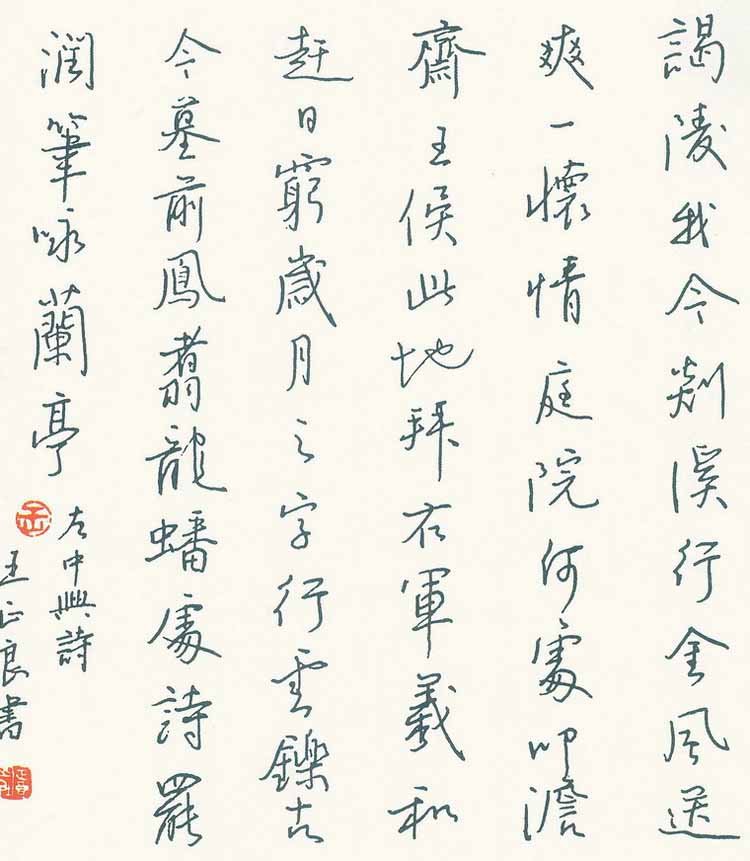 謁陵我今剡溪行金風送
爽一懷情庭院何處叩澹
齋王侯此地拜右軍羲和
赶日窮歲月之字行雲鑠古
今墓前鳳翥龍蟠處詩罷
潤筆咏蘭亭
左中興詩
王正良書